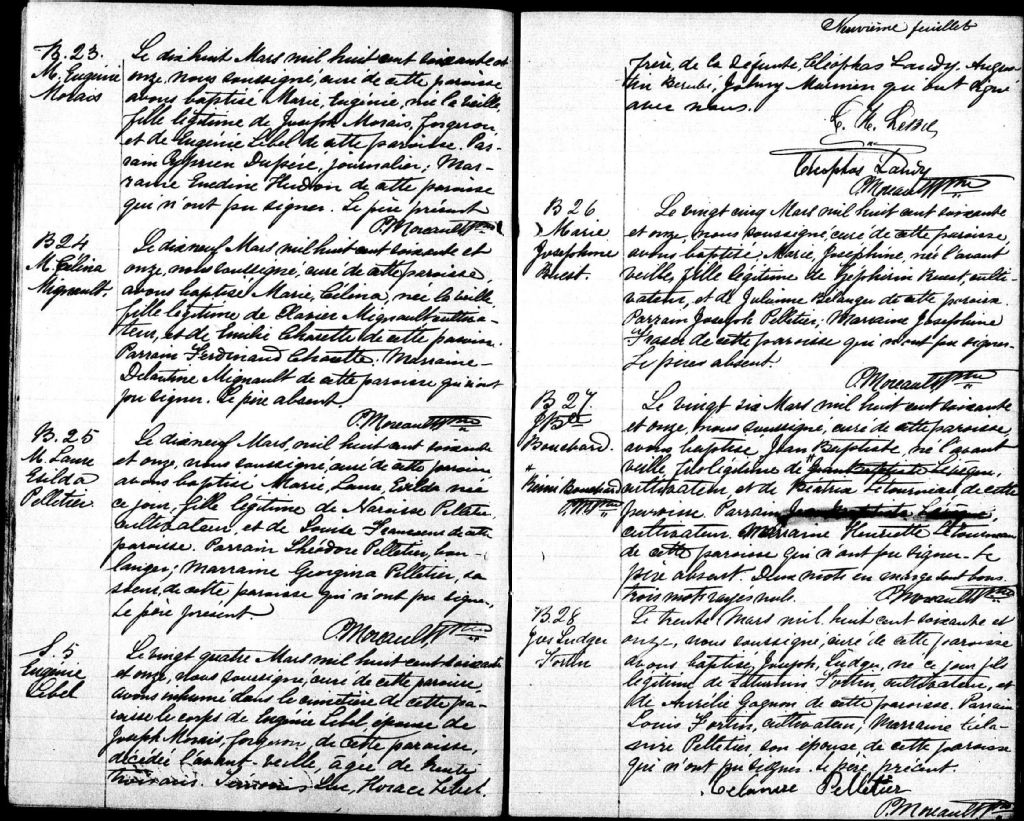 B. 23.
M. Eugénie
Morais
Le dix huit Mars mil huit cent soixante et
onze, nous soussigné, curé de cette paroisse
avons baptisé Marie, Eugénie, née la veille,
fille légitime de Joseph Morais, forgeron,
et de Eugénie Lebel de cette paroisse. Par-
rain Cyprien Dupéré, journalier; Mar-
raine Emedine Hudon de cette paroisse
qui n'ont pu signer. Le père présent
P. Moreault Ptre
B 24
M. Célina
Mignault.
Le dix neuf Mars mil huit cent soixante et
onze, nous soussigné, curé de cette paroisse
avons baptisé Marie, Célina, née la veille,
fille légitime de Xavier Mignault cultiva-
teur, et de Emilie Chorette de cette paroisse.
Parrain Ferdinand Chorette. Marraine
Mignault de cette paroisse qui n'ont
pu signer. Le père absent.
P. Moreault Ptre
B. 25
M. Laure
Exilda
Pelletier
Le dix neuf Mars, mil huit cent soixante
et onze, nous soussigné, curé de cette paroisse
avons baptisé Marie, Laure, Exilda née
ce jour, fille légitime de Narcisse Pelletier
cultivateur, et de Louise Francoeur de cette
paroisse. Parrain Théodore Pelletier, bou-
langer; Marraine Georgina Pelletier, sa
soeur, de cette paroisse qui n'ont pu signer,
Le père présent.
P. Moreault Ptre
S. 5
Eugénie
Lebel
Le vingt quatre Mars mil huit cent soixante
et onze, nous soussigné, curé de cette paroisse,
avons inhumé dans le cimetière de cette pa-
roisse le corps de Eugénie Lebel épouse de
Joseph Morais, forgeron, de cette paroisse,
décédée l'avant-veille, agée de trente
trois ans. Luc, Horace Lebel.
Neuvième feuillet
frère, de la défunte, Cléophas Landry. Augus-
tin Bérubé, Johnny qui ont signé
avec nous.
Cléophas Landry
P. Moreault Ptre
B 26
Marie
Josephine
Buest.
Le vingt cinq Mars mil huit cent soixante
et onze, nous soussigné, curé de cette paroisse,
avons baptisé, Marie, Josephine, née l'avant
veille, fille légitime de Zéphirin Buest, culti-
vateur, et de Julienne Bélanger de cette paroisse.
Parrain Joseph Pelletier; Marraine Josephine
Fraser de cette paroisse qui n'ont pu signer.
Le père absent.
P. Moreault Ptre
B 27
J. Bte
Bouchard.
Bouchard
P. M. Ptre
Le vingt six Mars mil huit cent soixante
et onze, nous soussigné, curé de cette paroisse,
avons baptisé, Jean Baptiste, né l'avant
veille, fils légitime de Jean Baptiste
cultivateur, et de Béatrix Létourneau de cette
paroisse. Parrain
cultivateur, Marraine Henriette Létourneau
de cette paroisse qui n'ont pu signer. Le
père absent. Deux mots en marge sont bons.
trois mots rayés nuls. P. Moreault Ptre
B 28
Jos Ludger
Fortin
Le trente Mars mil huit cent soixante et
onze, nous soussigné, curé de cette paroisse
avons baptisé, Joseph, Ludger, né ce jour fils
légitime de Saturnin Fortin, cultivateur, et
de Aurélie Gagnon de cette paroisse. Parrain
Louis Fortin, cultivateur; Marraine Céla-
nire Pelletier son épouse de cette paroisse
qui n'ont pu signer. Le père présent.
Célanire Pelletier
P. Moreault Ptre